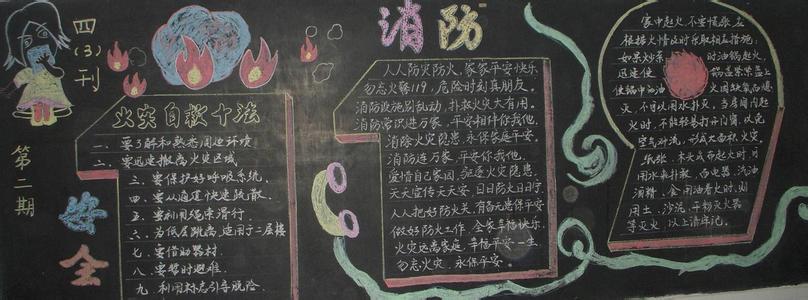 四(3)刊
第二期
安全
消防
火灾自救十法
一、要了解和熟悉周边环境
二、要迅速撤离火灾区域
三、要保护好呼吸系统,
四、要从通道快速疏散,
五、要利用绳索滑行,
六、为低层跳离,适用于二层楼
七、要借助器材.
八、要暂时避难.
九、利用标志引导脱险.
人人防灾防火,家家平安快乐
勿忘火警119,危险时刻真朋友。
消防设施别乱动,扑救火灾大有用。
消防常识进万家,平安相伴你我他,
消除火灾隐患,永保家庭平安。
消防连万家,平安你我他,
爱惜自己家园,
天天宣传天天安,日日防火日日宁,
人人把好防火关,
做好防火工作,全家幸福快乐
火灾远离家庭,幸福平安一生,
勿忘火灾,永保平安。
家中起火,不要慌张,应
根据火情及时采取相应措施:
如果炒菜时油锅起火,
迅速使锅盖紧紧盖上
使锅中油油火因缺氧而熄
灭,不可以用水扑灭,当房间内起
火时,不能轻易打开门窗,以免
空气对流,形成大面积火灾。
纸张、木头或布起火时,可
用水来扑救,而电器、汽油
酒精、食用油着火时,则
用土、沙泥、干粉灭火器
等灭火,以上请牢记。